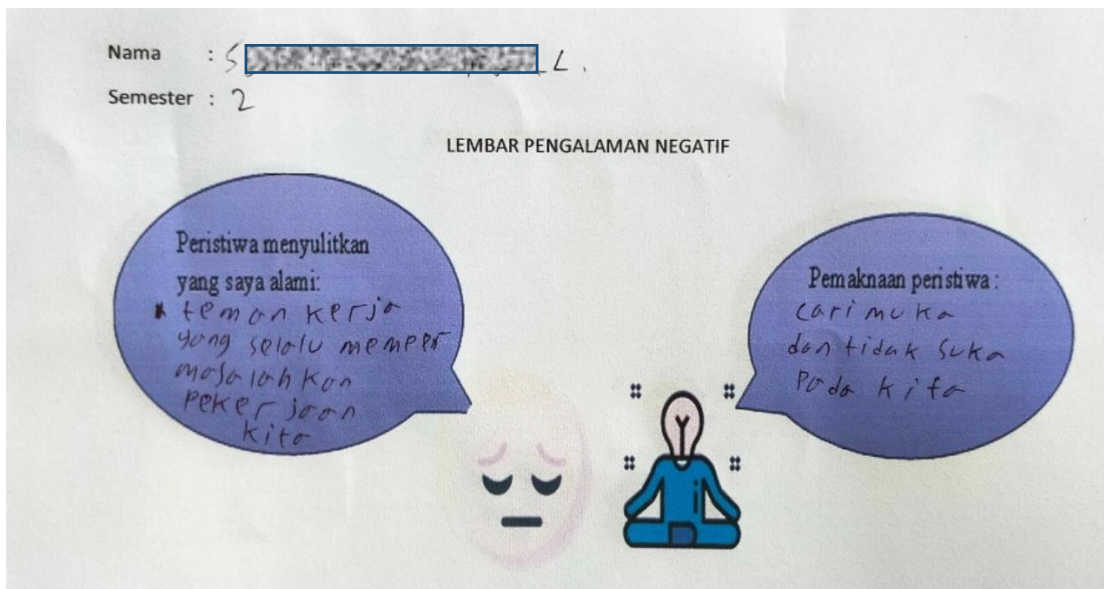 Nama : S L.
Semester : 2
LEMBAR PENGALAMAN NEGATIF
Peristiwa menyulitkan
yang saya alami:
teman kerja
yang selalu memper
masalahkan
pekerjaan
kita
Pemaknaan peristiwa :
cari muka
dan tidak suka
pada kita